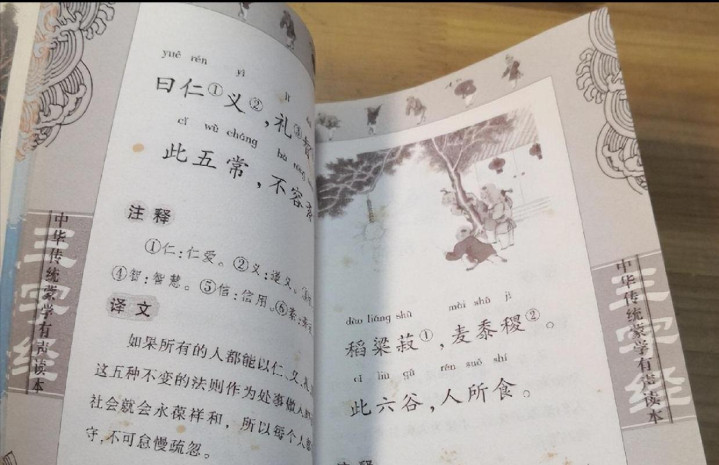 三字经
中华传统蒙学有声读本
yuē rén yì lǐ
曰仁①义②,礼③智
cǐ wǔ cháng bù róng
此五常,不容
注释
①仁:仁爱。②义:道义。
④智:智慧。⑤信:信用。⑥紊:
译文
如果所有的人都能以仁、义、礼
这五种不变的法则作为处事做人的
社会就会永葆祥和,所以每个人都
守,不可怠慢疏忽。
dào liáng shū mài shǔ jì
稻粱菽①,麦黍稷②。
cǐ liù gǔ rén suǒ shí
此六谷,人所食。
注释
三字经
中华传统蒙学有声读本